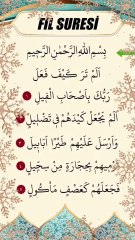 FİL SURESİ
بِسْمِ اللّٰهِ الرَّحْمٰنِ الرَّحِيمِ
اَلَمْ تَرَ كَيْفَ فَعَلَ
رَبُّكَ بِاَصْحَابِ الْفِيلِ
اَلَمْ يَجْعَلْ كَيْدَهُمْ فِي تَضْلِيلٍ
وَاَرْسَلَ عَلَيْهِمْ طَيْرًا اَبَابِيلَ
تَرْمِيهِمْ بِحِجَارَةٍ مِنْ سِجِّيلٍ
فَجَعَلَهُمْ كَعَصْفٍ مَأْكُولٍ